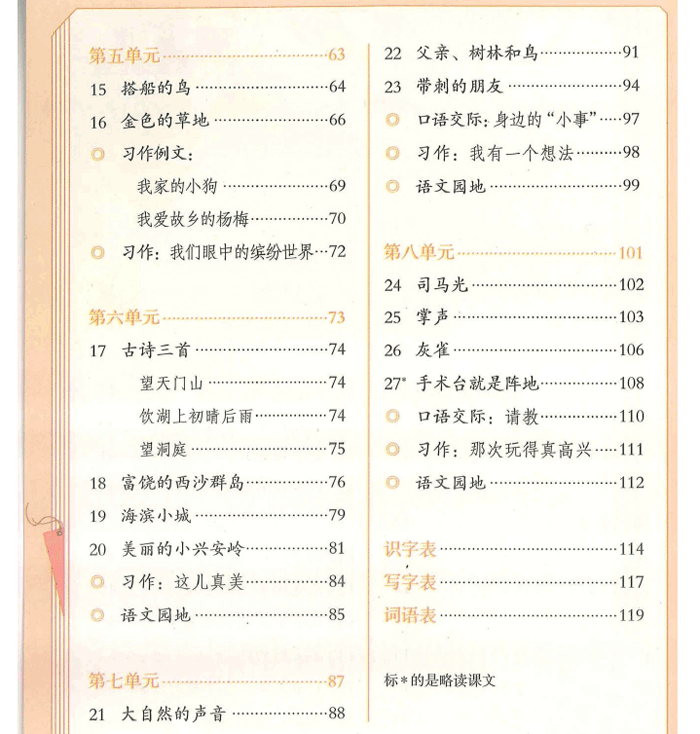 第五单元……63
15 搭船的鸟……64
16 金色的草地……66
◎ 习作例文：
我家的小狗……69
我爱故乡的杨梅……70
◎ 习作：我们眼中的缤纷世界…72
第六单元……73
17 古诗三首……74
望天门山……74
饮湖上初晴后雨……74
望洞庭……75
18 富饶的西沙群岛……76
19 海滨小城……79
20 美丽的小兴安岭……81
◎ 习作：这儿真美……84
◎ 语文园地……85
第七单元……87
21 大自然的声音……88
22 父亲、树林和鸟……91
23 带刺的朋友……94
◎ 口语交际：身边的“小事”……97
◎ 习作：我有一个想法……98
◎ 语文园地……99
第八单元……101
24 司马光……102
25 掌声……103
26 灰雀……106
27* 手术台就是阵地……108
◎ 口语交际：请教……110
◎ 习作：那次玩得真高兴……111
◎ 语文园地……112
识字表……114
写字表……117
词语表……119
标*的是略读课文